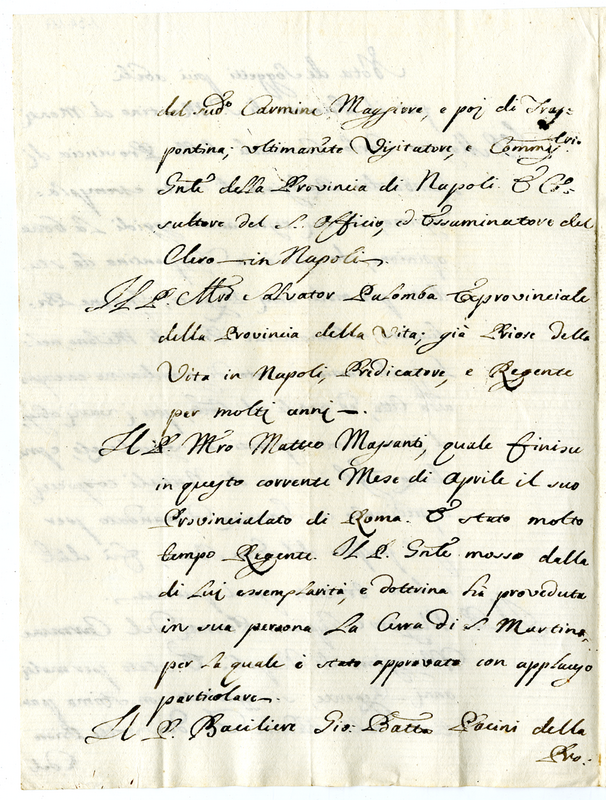 del sud.º Carmine Maggiore, e poi di Tras=
pontina; ultimam.te Visitatore, e Comm.rio
Gn̄le della Provincia di Napoli. È Co̅n=
sultore del S. Officio, ed Essaminatore del
Clero in Napoli.
Il P. Mr̄o Salvator Palomba Exprovinciale
della Provincia della Vita; già Priore della
Vita in Napoli, Predicatore, e Regente
per molti anni.
Il P. Mr̄o Matteo Massanti, quale finisce
in questo corrente Mese di Aprile il suo
Provincialato di Roma. È stato molto
tempo Regente. Il P. Gn̄le mosso dalla
di Lui essemplarità, e dottrina hà proveduta
in sua persona la Cura di S. Martino,
per la quale è stato approvato con applauso
particolare.
Il P. Baciliere Gio: Batta Pacini della
Pro: